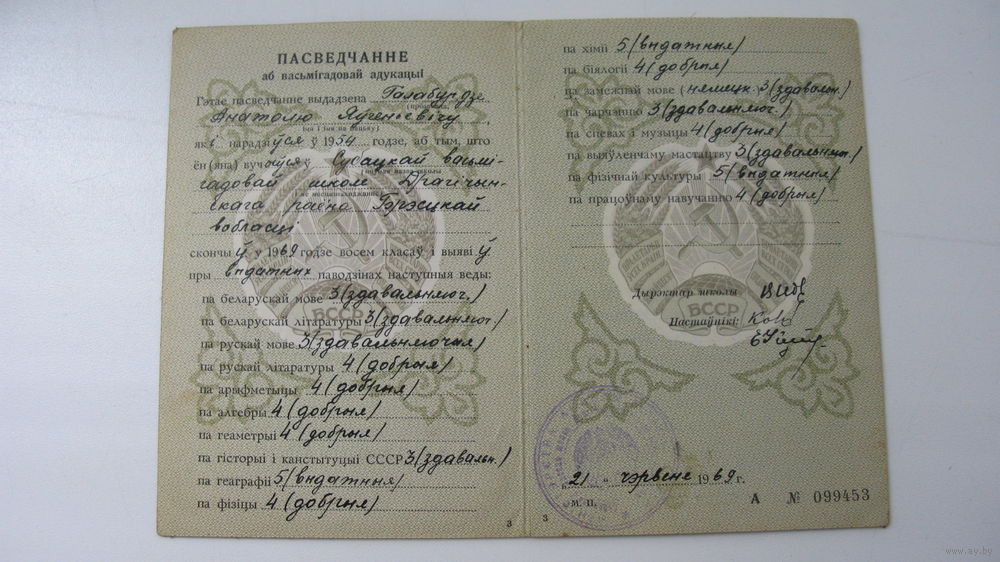 ПАСВЕДЧАННЕ
аб васьмігадовай адукацыі
Гэтае пасведчанне выдадзена Галабурдзе
Анатолю Яўгеньевічу
(імя і імя па бацьку)
які нарадзіўся ў 1954 годзе, аб тым, што
ён(яна) вучыўся ў васьмі-
(поўная назва школы
гадовай школе Драгічын-
і яе месцазнаходжанне)
скага раёна Брэсцкай
вобласці
скончыў у 1969 годзе восем класаў і выявіў
пры выдатных паводзінах наступныя веды:
па беларускай мове 3 (здавальняюч.)
па беларускай літаратуры 3 (здавальняюч.)
па рускай мове 3 (здавальняючыя)
па рускай літаратуры 4 (добрыя)
па арыфметыцы 4 (добрыя)
па алгебры 4 (добрыя)
па геаметрыі 4 (добрыя)
па гісторыі і канстытуцыі СССР 3 (здавальн.)
па геаграфіі 5 (выдатныя)
па фізіцы 4 (добрыя)
3
па хіміі 5 (выдатныя)
па біялогіі 4 (добрыя)
па замежнай мове (немецк. 3 (здавальн.)
па чарчэнню 3 (здавальняюч.)
па спевах і музыцы 4 (добрыя)
па выяўленчаму мастацтву 3 (здавальняюч.)
па фізічнай культуры 5 (выдатныя)
па працоўнаму навучанню 4 (добрыя)
БССР
БССР
Дырэктар школы
Настаўнікі:
„21“ чэрвене 1969 г.
М. П.
А № 099453
3
www.ay.by